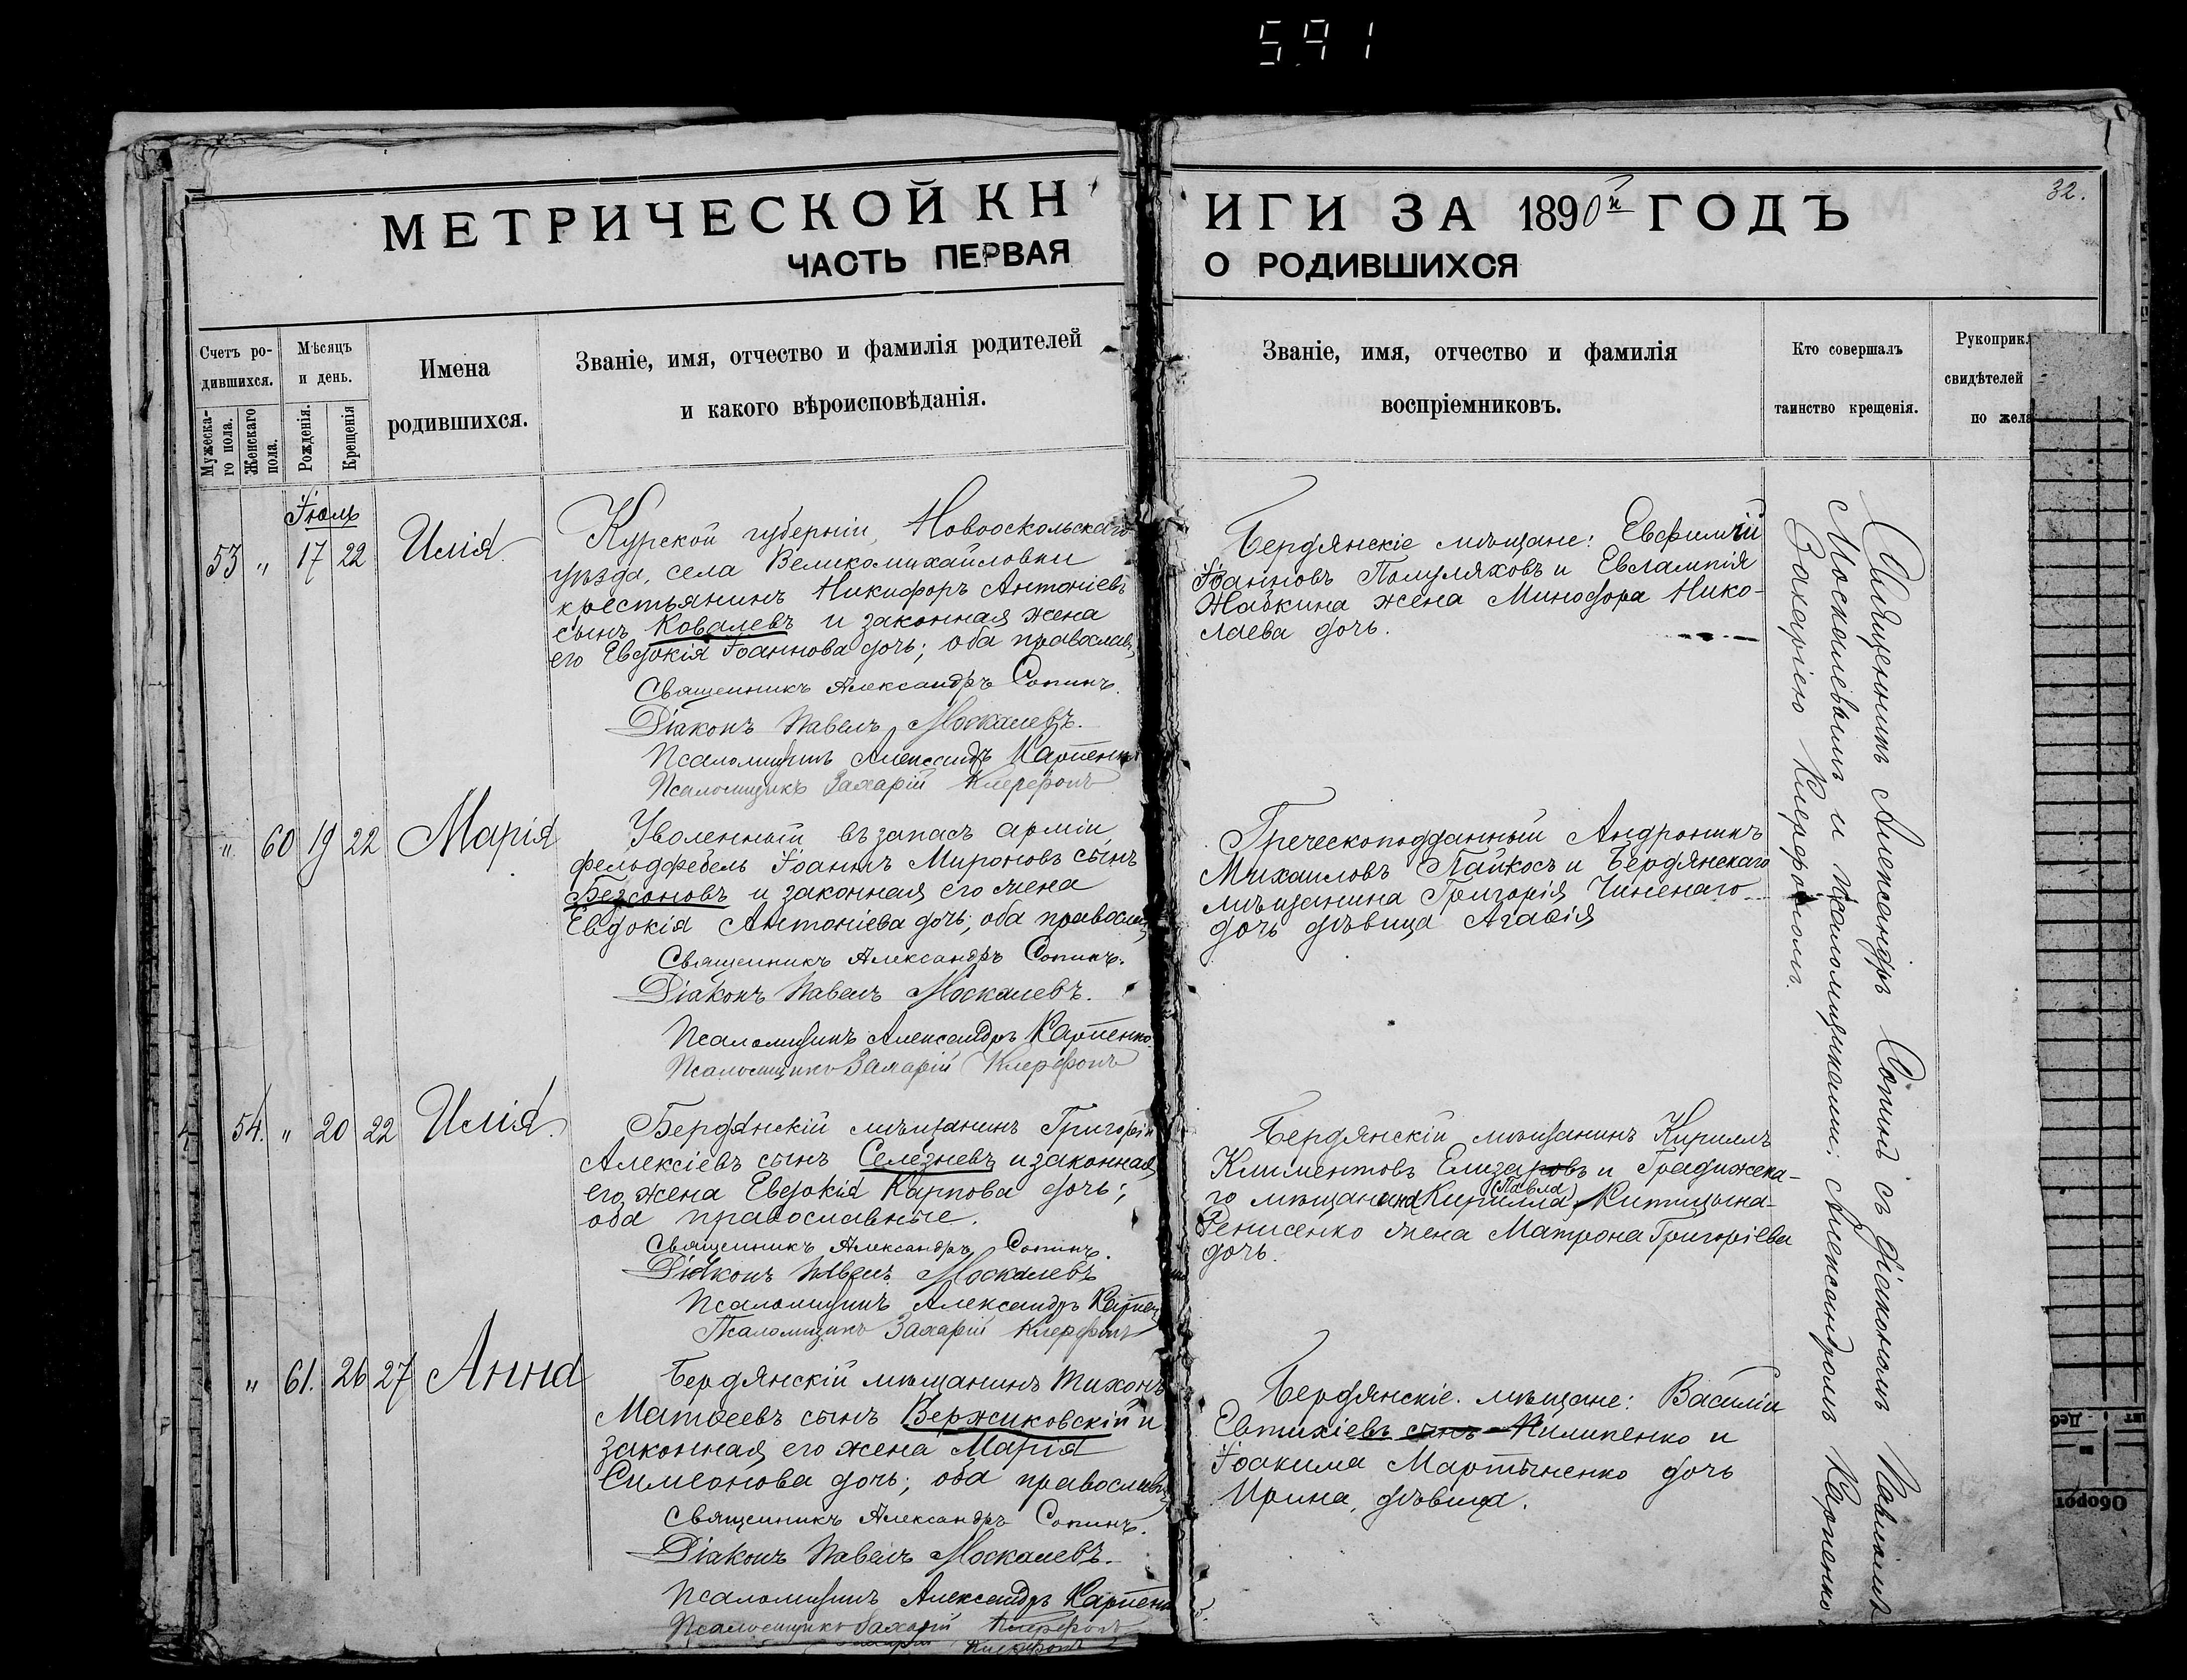 591
32.
МЕТРИЧЕСКОЙ КН
ИГИ ЗА 1890й ГОДЪ
ЧАСТЬ ПЕРВАЯ
О РОДИВШИХСЯ
Счетъ ро-
дившихся.
Мужеска-
го пола.
Женскаго
пола.
Мѣсяцъ
и день.
Рожденія.
Крещенія
Имена
родившихся.
Званіе, имя, отчество и фамилія родителей
и какого вѣроисповѣданія.
Званіе, имя, отчество и фамилія
воспріемниковъ.
Кто совершалъ
таинство крещенія.
Рукоприкл
свидѣтелей
по жела
Іюль
53 " 17 22 Илія
Курской губерніи, Новооскольскаго
уѣзда, села Великомихайловки
крестьянинъ Никифоръ Антоніевъ
сынъ Ковалевъ и законная жена
его Евдокія Іоаннова дочь; оба православн.
Священникъ Александръ Сопинъ.
Діаконъ Павелъ Москалевъ.
Псаломщикъ Александръ Карпенко
Псаломщикъ Захарій Клерфонъ
Бердянскіе мѣщане: Евфимій
Іоанновъ Полуляховъ и Евлампія
Жабкина жена Минодора Нико-
лаева дочь.
" 60 19 22 Марія
Уволенный въ запасъ арміи
фельдфебель Іоаннъ Мироновъ сынъ
Безсоновъ и законная его жена
Евдокія Антоніева дочь; оба православн.
Священникъ Александръ Сопинъ.
Діаконъ Павелъ Москалевъ.
Псаломщикъ Александръ Карпенко.
Псаломщикъ Захарій Клерфонъ
Греческоподданный Андроникъ
Михаиловъ Пайкосъ и Бердянскаго
мѣщанина Григорія Чиненаго
дочь дѣвица Агафія
54. " 20 22 Илія.
Бердянскій мѣщанинъ Григорій
Алексіевъ сынъ Селезневъ и законная
его жена Евдокія Карпова дочь;
оба православные.
Священникъ Александръ Сопинъ.
Діаконъ Павелъ Москалевъ
Псаломщикъ Александръ Карпен
Псаломщикъ Захарій Клерфонъ
Бердянскій мѣщанинъ Кириллъ
Климентовъ Елизаровъ и Градижска-
го мѣщанина Кирилла (Павла) Китицына-
Денисенко жена Матрона Григоріева
дочь.
" 61. 26 27 Анна
Бердянскій мѣщанинъ Тихонъ
Матѳеевъ сынъ Вержиковскій и
законная его жена Марія
Симеонова дочь; оба православн.
Священникъ Александръ Сопинъ.
Діаконъ Павелъ Москалевъ.
Псаломщикъ Александръ Карпенк
Псаломщикъ Захарій Клерфонъ
Бердянскіе мѣщане: Василій
Евтихіевъ сынъ Пилипенко и
Іоакима Мартыненко дочь
Ирина, дѣвица.
Священникъ Александръ Сопинъ съ Діакономъ Павломъ
Москалевымъ и псаломщиками: Александромъ Карпенко
Захаріею Клерфономъ.
Оборот